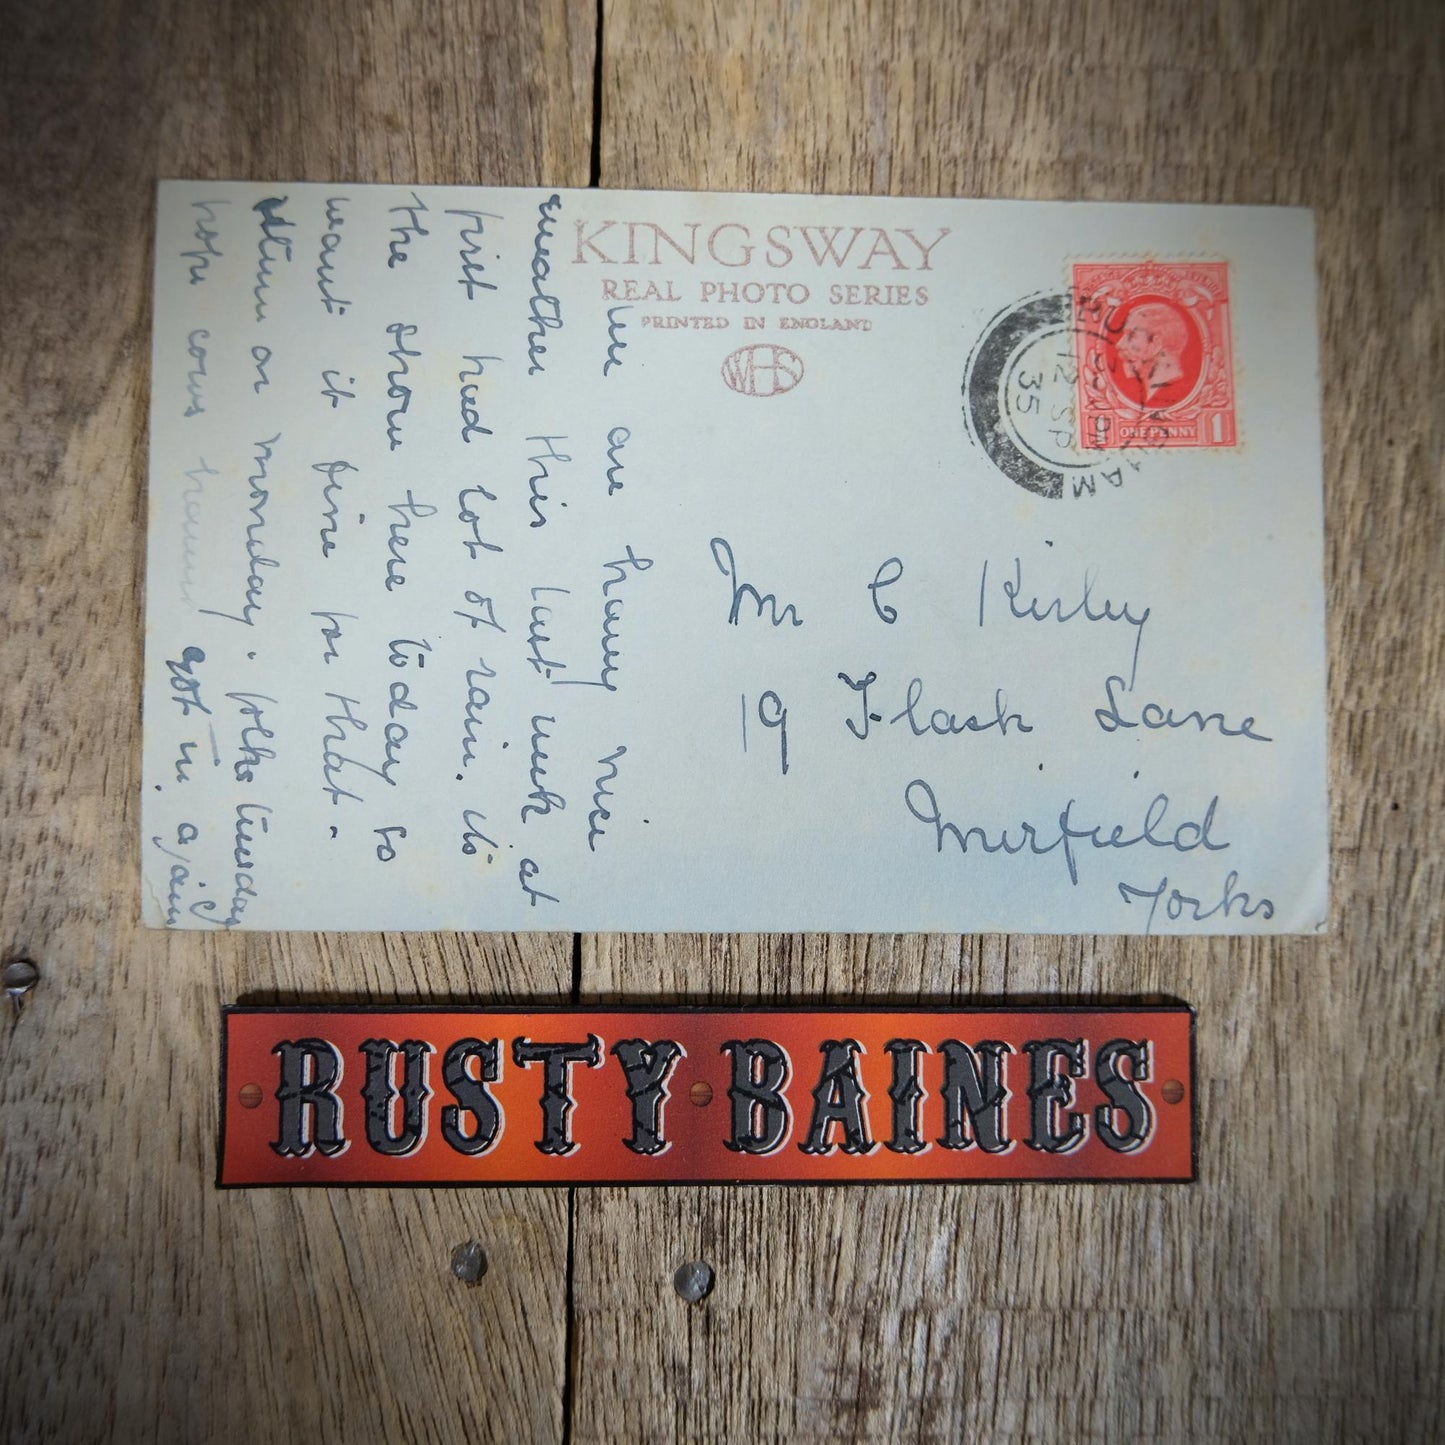 KINGSWAY
REAL PHOTO SERIES
PRINTED IN ENGLAND
WHS
12 SP
35
ONE PENNY 1
we are having nice
weather this last week at
first had lot of rain. its
the show here today so
want it fine for that.
return on monday. folks tuesday
hope corns got in again
Mr C Kirley
19 Flash Lane
Mirfield
Yorks
RUSTY BAINES